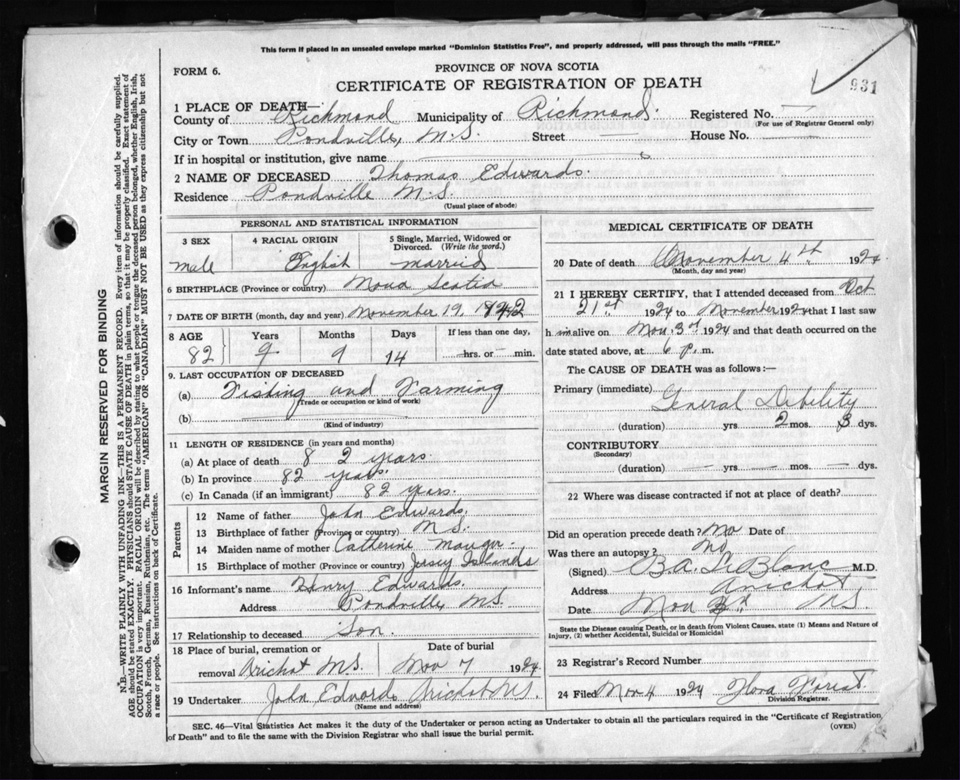 This form if placed in an unsealed envelope marked "Dominion Statistics Free", and properly addressed, will pass through the mails "FREE."
FORM 6.
PROVINCE OF NOVA SCOTIA
CERTIFICATE OF REGISTRATION OF DEATH
931
1 PLACE OF DEATH—
County of Richmond Municipality of Richmond. Registered No. —
(For use of Registrar General only)
City or Town Pondville, N.S. Street — House No. —
If in hospital or institution, give name —
2 NAME OF DECEASED Thomas Edwards.
Residence Pondville N.S.
(Usual place of abode)
PERSONAL AND STATISTICAL INFORMATION
3 SEX
male
4 RACIAL ORIGIN
English
5 Single, Married, Widowed or Divorced. (Write the word.)
married
6 BIRTHPLACE (Province or country) Nova Scotia
7 DATE OF BIRTH (month, day and year) November 19, 1842
8 AGE Years Months Days If less than one day,
82 9 9 14 — hrs. or — min.
9. LAST OCCUPATION OF DECEASED
(a) Fishing and Farming
(Trade or occupation or kind of work)
(b) —
(Kind of industry)
11 LENGTH OF RESIDENCE (in years and months)
(a) At place of death 82 years.
(b) In province 82 years.
(c) In Canada (if an immigrant) 82 years.
Parents
12 Name of father John Edwards.
13 Birthplace of father (Province or country) N.S.
14 Maiden name of mother Catherine Mauger.
15 Birthplace of mother (Province or country) Jersey Islands
16 Informant's name Henry Edwards.
Address Pondville N.S.
17 Relationship to deceased Son.
18 Place of burial, cremation or removal Arichat N.S.
Date of burial
Nov 7 1924
19 Undertaker John Edwards Arichat N.S.
(Name and address)
MEDICAL CERTIFICATE OF DEATH
20 Date of death November 4th 1924.
(Month, day and year)
21 I HEREBY CERTIFY, that I attended deceased from Oct
21st 1924 to November 1924 that I last saw
h im alive on Nov. 3rd 1924 and that death occurred on the
date stated above, at 6 p. m.
The CAUSE OF DEATH was as follows:—
Primary (immediate) General Debility
(duration) yrs 2 mos. 3 dys.
CONTRIBUTORY —
(Secondary)
(duration) — yrs — mos. — dys.
22 Where was disease contracted if not at place of death?
Did an operation precede death? No Date of
Was there an autopsy? No
(Signed) B.A. LeBlanc M.D.
Address Arichat
Date Nov N.S.
State the Disease causing Death, or in death from Violent Causes, state (1) Means and Nature of Injury, (2) whether Accidental, Suicidal or Homicidal
23 Registrar's Record Number
24 Filed Nov 4 1924 Flora Forest.
Division Registrar.
SEC. 46—Vital Statistics Act makes it the duty of the Undertaker or person acting as Undertaker to obtain all the particulars required in the "Certificate of Registration of Death" and to file the same with the Division Registrar who shall issue the burial permit.
(OVER)
MARGIN RESERVED FOR BINDING
N.B.—WRITE PLAINLY WITH UNFADING INK—THIS IS A PERMANENT RECORD. Every item of information should be carefully supplied.
AGE should be stated EXACTLY. PHYSICIANS should STATE CAUSE OF DEATH in plain terms, so that it may be properly classified. Exact statement of
OCCUPATION is very important. RACIAL ORIGIN will be described by stating to what people or tongue the deceased person belonged, whether English, Irish,
Scotch, French, German, Russian, Ruthenian, etc. The terms "AMERICAN" OR "CANADIAN" MUST NOT BE USED as they express citizenship but not
a race or people. See instructions on back of Certificate.